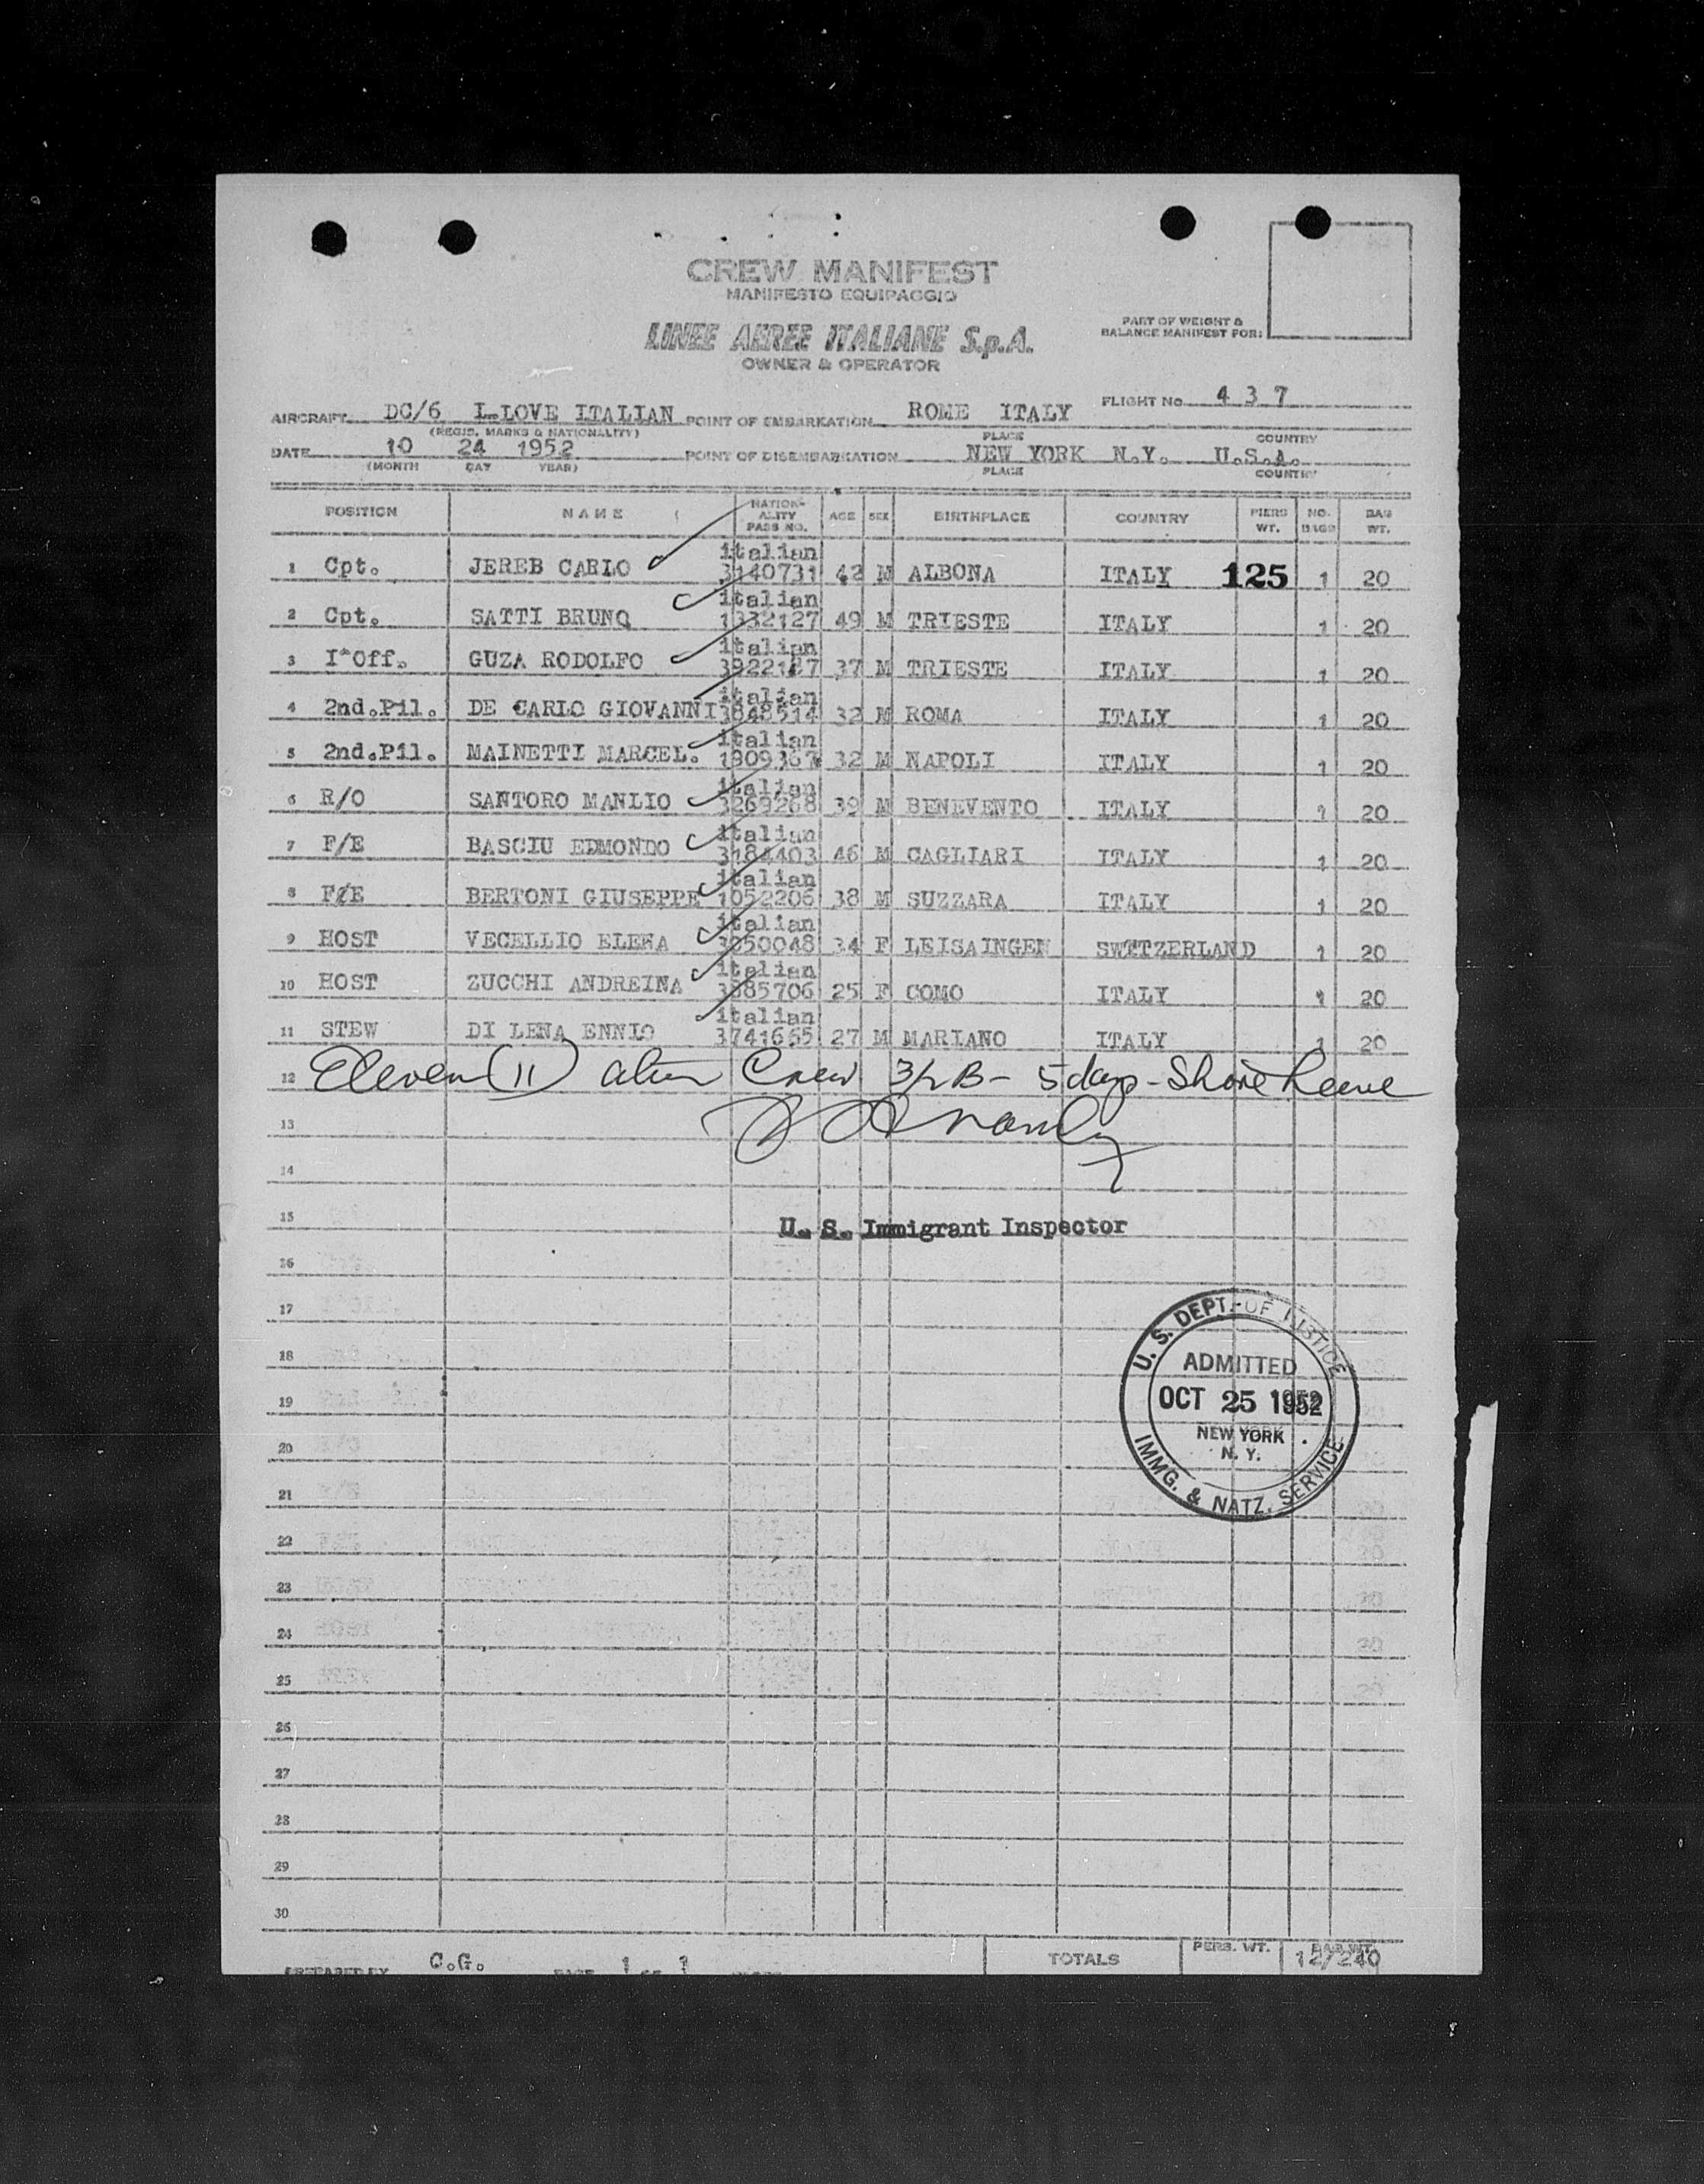 CREW MANIFEST
MANIFESTO EQUIPAGGIO
LINEE AEREE ITALIANE S.p.A.
OWNER & OPERATOR
PART OF WEIGHT &
BALANCE MANIFEST FOR:
AIRCRAFT DC/6 I-LOVE ITALIAN POINT OF EMBARKATION ROME ITALY FLIGHT No. 4 3 7
(REGIS. MARKS & NATIONALITY) PLACE COUNTRY
DATE 10 24 1952 POINT OF DISEMBARKATION NEW YORK N.Y. U.S.A.
(MONTH DAY YEAR) PLACE COUNTRY
POSITION NAME NATION-ALITY PASS NO. AGE SEX BIRTHPLACE COUNTRY PERS WT. NO. BAGS BAG WT.
1 Cpt. JEREB CARLO italian 3140731 42 M ALBONA ITALY 125 1 20
2 Cpt. SATTI BRUNO italian 1332127 49 M TRIESTE ITALY 1 20
3 I^Off. GUZA RODOLFO italian 37 M TRIESTE ITALY 1 20
4 2nd.Pil. DE CARLO GIOVANNI italian 3848514 32 M ROMA ITALY 1 20
5 2nd.Pil. MAINETTI MARCEL. italian 32 M NAPOLI ITALY 1 20
6 R/O SANTORO MANLIO italian 3269268 39 M BENEVENTO ITALY 1 20
7 F/E BASCIU EDMONDO italian 3184403 46 M CAGLIARI ITALY 1 20
8 F/E BERTONI GIUSEPPE italian 1052206 38 M SUZZARA ITALY 1 20
9 HOST VECELLIO ELENA italian 34 F LEISAINGEN SWETZERLAND 1 20
10 HOST ZUCCHI ANDREINA italian 25 F COMO ITALY 1 20
11 STEW DI LENA ENNIO italian 3741665 27 M MARIANO ITALY 1 20
12 Eleven (11) alien Crew 3/2 B - 5 days - Shore Leave
13
14
15 U. S. Immigrant Inspector
16
17
18
19
20
21
22
23
24
25
26
27
28
29
30
U. S. DEPT. OF JUSTICE
ADMITTED
OCT 25 1952
NEW YORK
N. Y.
IMMG. & NATZ. SERVICE
PREPARED BY C.G. PAGE 1 OF 1 TOTALS PERS. WT. BAG WT. 12/240